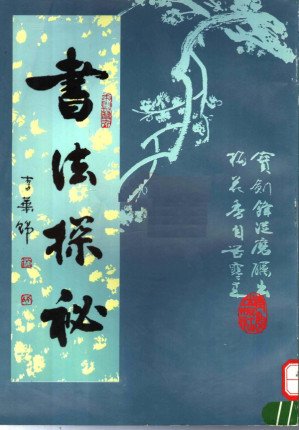 寶劍鋒從磨礪出
梅花香自苦寒来
書法探秘
李華錦